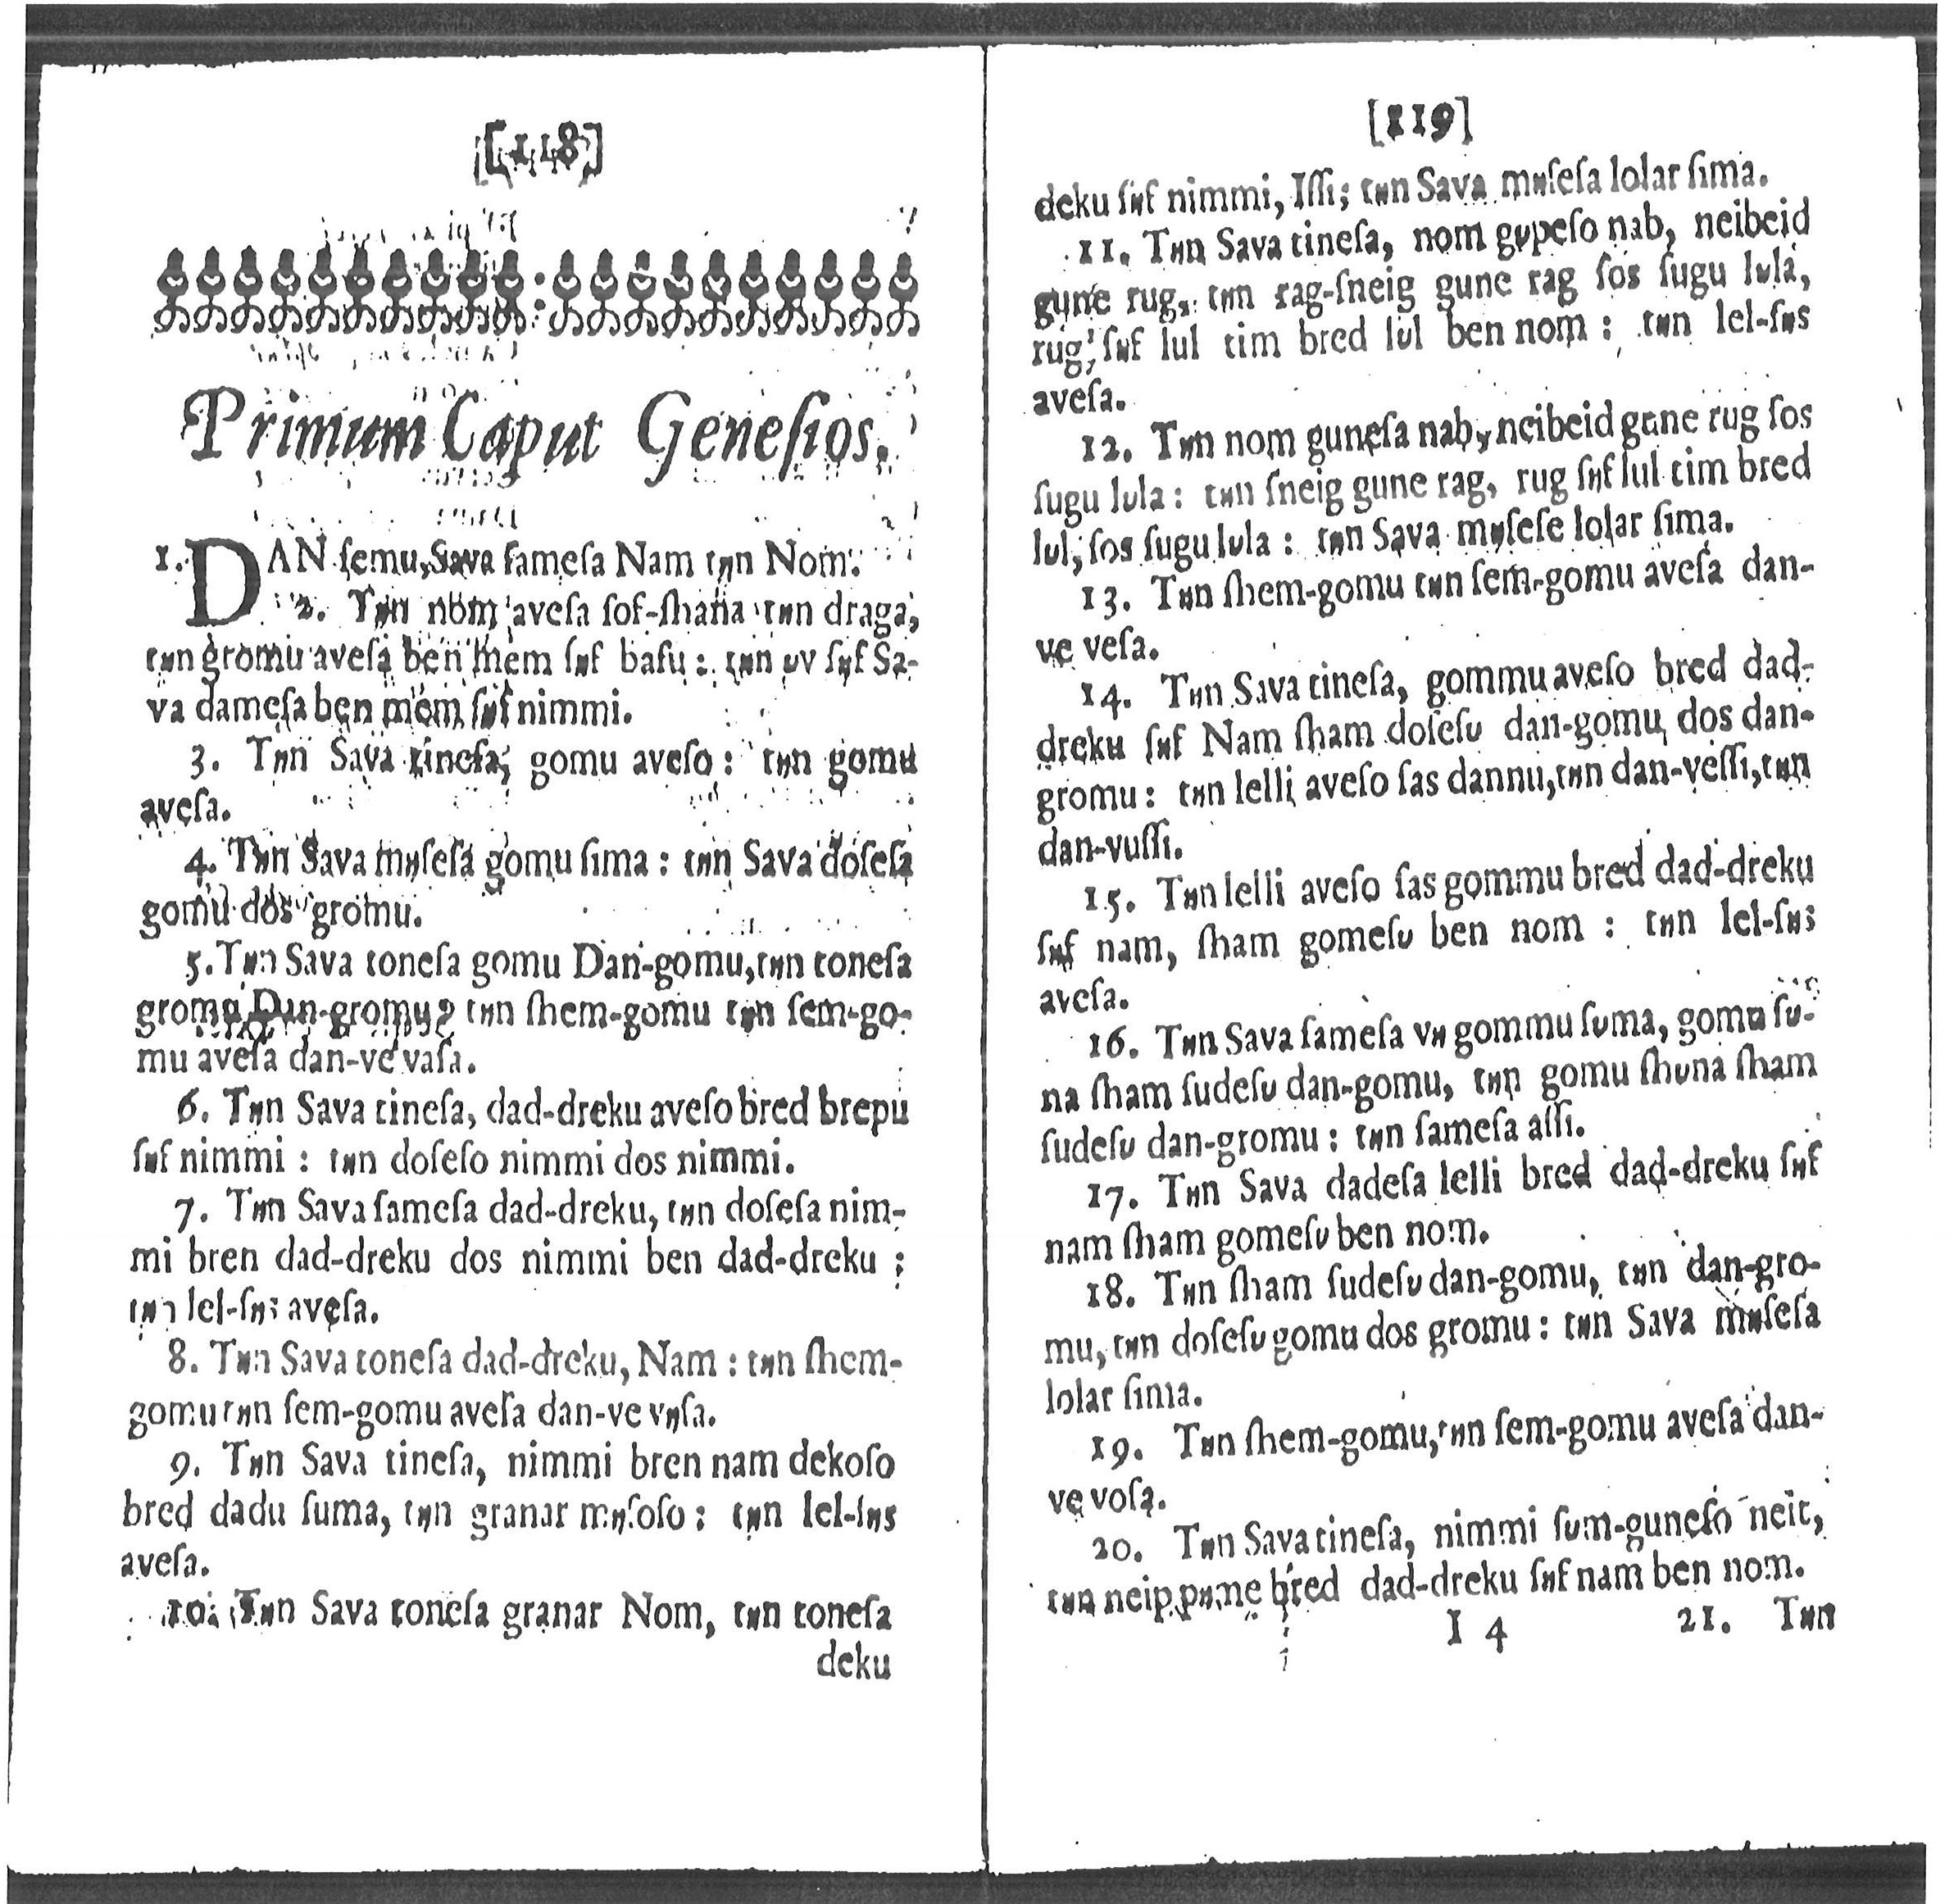 [118]
Primum Caput Geneſios.
1. DAN ſemu, Sava ſameſa Nam tηn Nom.
2. Tηn nom aveſa ſof-ſhana tηn draga,
tηn gromu aveſa ben mem ſηf baſu: tηn υv ſηf Sa-
va dameſa ben mem ſηf nimmi.
3. Tηn Sava tineſa, gomu aveſo: tηn gomu
aveſa.
4. Tηn Sava mηſeſa gomu ſima: tηn Sava doſeſa
gomu dos gromu.
5. Tηn Sava toneſa gomu Dan-gomu, tηn toneſa
gromu Dan-gromu, tηn ſhem-gomu tηn ſem-go-
mu aveſa dan-ve vaſa.
6. Tηn Sava tineſa, dad-dreku aveſo bred brepu
ſηf nimmi: tηn doſeſo nimmi dos nimmi.
7. Tηn Sava ſameſa dad-dreku, tηn doſeſa nim-
mi bren dad-dreku dos nimmi ben dad-dreku;
tηn lel-ſηs aveſa.
8. Tηn Sava toneſa dad-dreku, Nam: tηn ſhem-
gomu tηn ſem-gomu aveſa dan-ve vηſa.
9. Tηn Sava tineſa, nimmi bren nam dekoſo
bred dadu ſuma, tηn granar mηſoſo: tηn lel-ſηs
aveſa.
10. Tηn Sava toneſa granar Nom, tηn toneſa
deku
[119]
deku ſηf nimmi, Iſſi; tηn Sava mηſeſa lolar ſima.
11. Tηn Sava tineſa, nom gυpeſo nab, neibeid
gune rug, tηn rag-ſneig gune rag ſos ſugu lυla,
rug, ſηf lul tim bred lυl ben nom: tηn lel-ſηs
aveſa.
12. Tηn nom guneſa nab, neibeid gune rug ſos
ſugu lυla: tηn ſneig gune rag, rug ſηf lul tim bred
lυl, ſos ſugu lυla: tηn Sava mηſeſe lolar ſima.
13. Tηn ſhem-gomu tηn ſem-gomu aveſa dan-
ve veſa.
14. Tηn Sava tineſa, gommu aveſo bred dad-
dreku ſηf Nam ſham doſeſυ dan-gomu dos dan-
gromu: tηn lelli aveſo ſas dannu, tηn dan-veſſi, tηn
dan-vuſſi.
15. Tηn lelli aveſo ſas gommu bred dad-dreku
ſηf nam, ſham gomeſυ ben nom: tηn lel-ſηs
aveſa.
16. Tηn Sava ſameſa vη gommu ſυma, gomu ſυ-
na ſham ſudeſυ dan-gomu, tηn gomu ſhυna ſham
ſudeſυ dan-gromu: tηn ſameſa aſſi.
17. Tηn Sava dadeſa lelli bred dad-dreku ſηf
nam ſham gomeſυ ben nom.
18. Tηn ſham ſudeſυ dan-gomu, tηn dan-gro-
mu, tηn doſeſυ gomu dos gromu: tηn Sava mηſeſa
lolar ſima.
19. Tηn ſhem-gomu, tηn ſem-gomu aveſa dan-
ve voſa.
20. Tηn Sava tineſa, nimmi ſυm-guneſo neit,
tηn neip pηne bred dad-dreku ſηf nam ben nom.
I 4 21. Tηn